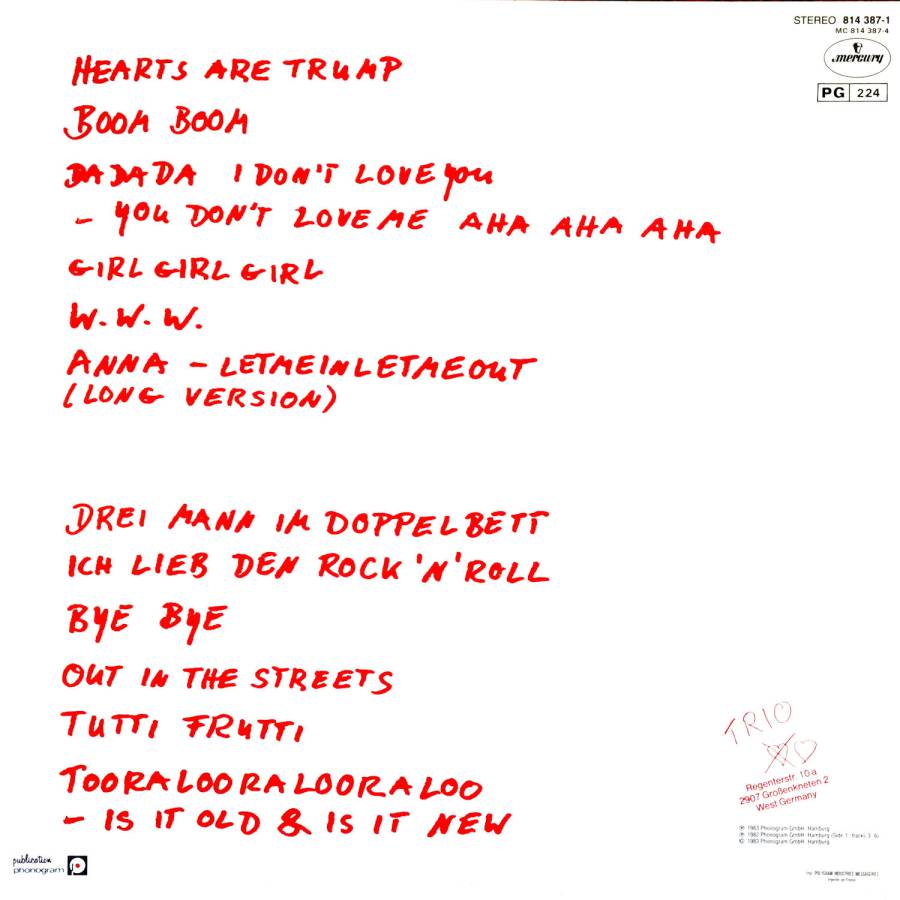 STEREO 814 387-1
MC 814 387-4
mercury
PG 224
HEARTS ARE TRUMP
BOOM BOOM
DA DA DA I DON'T LOVE YOU
- YOU DON'T LOVE ME AHA AHA AHA
GIRL GIRL GIRL
W.W.W.
ANNA - LETMEINLETMEOUT
(LONG VERSION)
DREI MANN IM DOPPELBETT
ICH LIEB DEN ROCK 'N' ROLL
BYE BYE
OUT IN THE STREETS
TUTTI FRUTTI
TOORALOORALOORALOO
- IS IT OLD & IS IT NEW
TRIO
Regenterstr. 10 a
2907 Großenkneten 2
West Germany
℗ 1983 Phonogram GmbH Hamburg
℗ 1982 Phonogram GmbH Hamburg (Side 1: track) 3, 6)
© 1983 Phonogram GmbH Hamburg
publication
phonogram
POLYGRAM INDUSTRIES MESSAGERIES